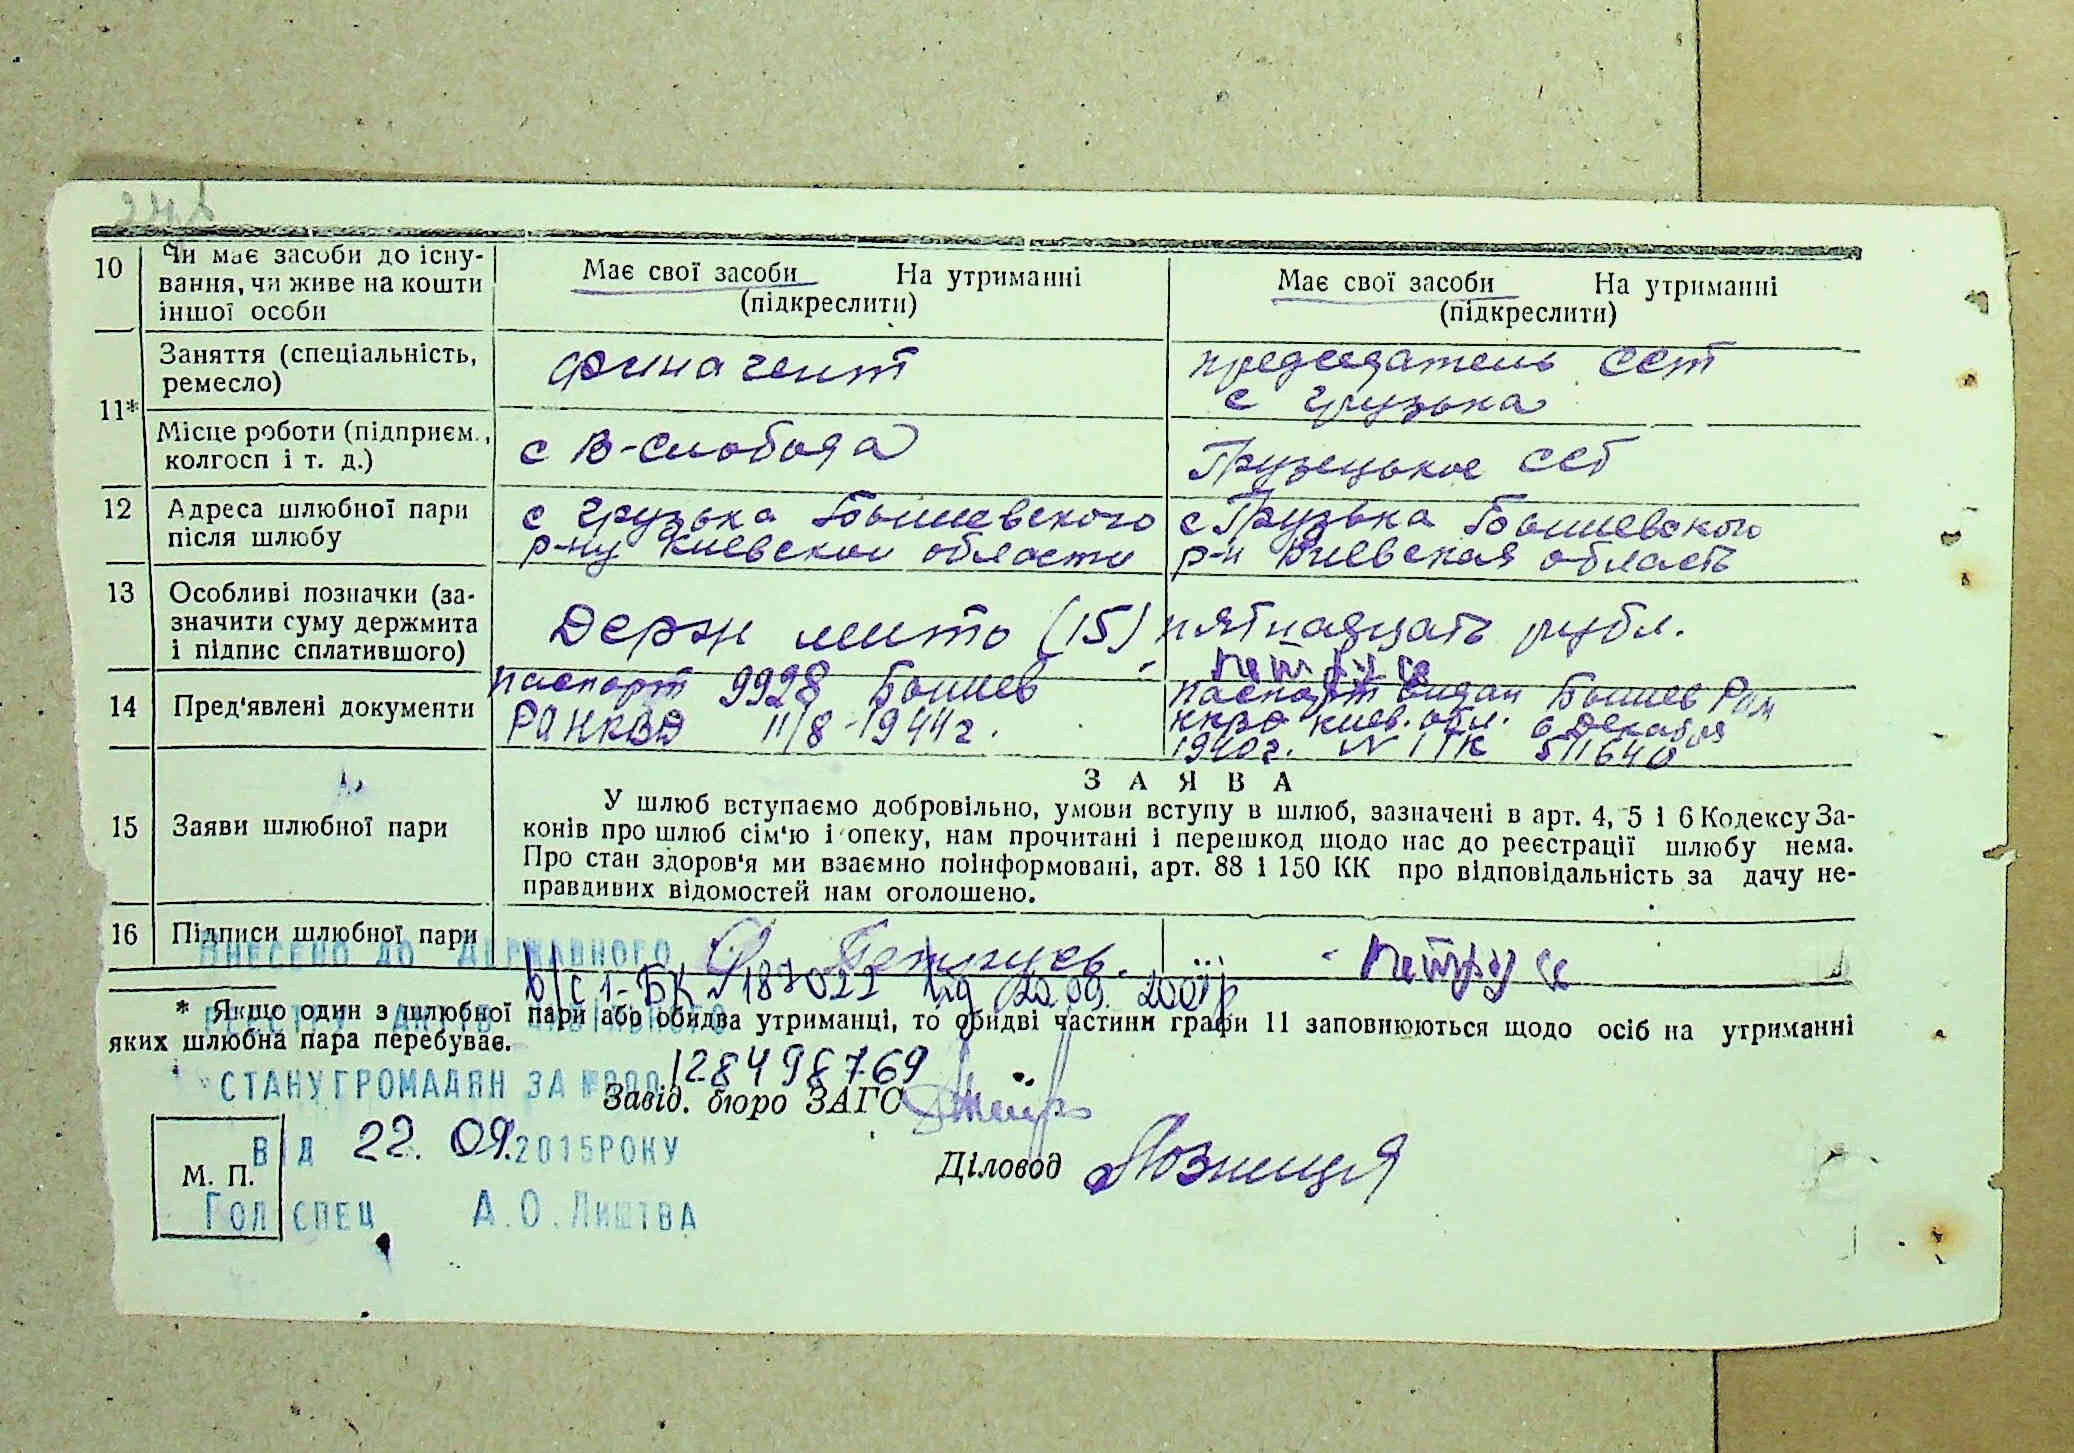 10 Чи має засоби до існу-
вання, чи живе на кошти
іншої особи
Має свої засоби На утриманні
(підкреслити)
Має свої засоби На утриманні
(підкреслити)
11*
Заняття (спеціальність,
ремесло)
финагент
председатель ССТ
с Грузька
Місце роботи (підприєм.,
колгосп і т. д.)
с В-Слобода
Грузецькое ССТ
12 Адреса шлюбної пари
після шлюбу
с Грузька Бышевского
р-ну Киевскои области
с Грузька Бышевского
р-н Киевская область
13 Особливі позначки (за-
значити суму держмита
і підпис сплатившого)
Держ мито (15) пятнадцать рубл.
14 Пред'явлені документи
паспорт 9928 Бышев
РОНКВД 11/8-1944г.
паспорт видан Бышев Рай
НКВД Киев. обл. 6 декабря
1940г. № ІТК 511640
15 Заяви шлюбної пари
ЗАЯВА
У шлюб вступаємо добровільно, умови вступу в шлюб, зазначені в арт. 4, 5 і 6 Кодексу За-
конів про шлюб сім'ю і опеку, нам прочитані і перешкод щодо нас до реєстрації шлюбу нема.
Про стан здоров'я ми взаємно поінформовані, арт. 88 і 150 КК про відповідальність за дачу не-
правдивих відомостей нам оголошено.
16 Підписи шлюбної пари
ВНЕСЕНО ДО ДЕРЖАВНОГО
в/с 1-БК №187022 від 20.09.
* Якщо один з шлюбної пари або обидва утриманці, то обидві частини графи 11 заповнюються щодо осіб на утриманні
яких шлюбна пара перебуває.
РЕЄСТРУ АКТІВ ЦИВІЛЬНОГО
СТАНУ ГРОМАДЯН ЗА №000 128498769
Завід. бюро ЗАГС
М. П.
ВІД 22.09.2015РОКУ
Діловод Лозниця
ГОЛ СПЕЦ А.О. ЛИШТВА